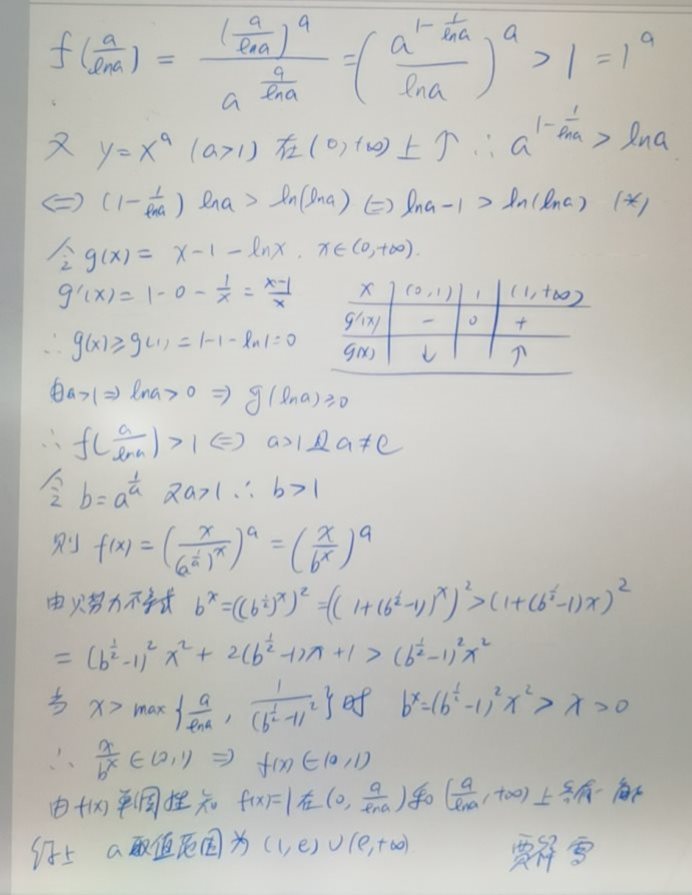 f(a/lna) = (a/lna)^a / a^(a/lna) = (a^(1-1/lna) / lna)^a > 1 = 1^a
又 y=x^a (a>1) 在(0,+∞)上↑ ∴ a^(1-1/lna) > lna
⇔ (1-1/lna) lna > ln(lna) ⇔ lna-1 > ln(lna) (*)
令 g(x) = x-1-lnx, x∈(0,+∞).
g'(x) = 1-0-1/x = (x-1)/x
∴ g(x)≥g(1)=1-1-ln1=0
x (0,1) 1 (1,+∞)
g'(x) - 0 +
g(x) ↓ ↑
由a>1⇒lna>0 ⇒ g(lna)≥0
∴ f(a/lna)>1 ⇔ a>1且a≠e
令 b=a^(1/a) 又a>1 ∴ b>1
则 f(x) = (x/(a^(1/a))^x)^a = (x/b^x)^a
由贝努力不等式 b^x=((b^(1/2))^x)^2=((1+(b^(1/2)-1))^x)^2>(1+(b^(1/2)-1)x)^2
= (b^(1/2)-1)^2 x^2 + 2(b^(1/2)-1)x+1 > (b^(1/2)-1)^2 x^2
当 x > max{a/lna, 1/(b^(1/2)-1)^2}时 b^x=(b^(1/2)-1)^2 x^2 > x > 0
∴ x/b^x ∈(0,1) ⇒ f(x)∈(0,1)
由f(x)单调性知 f(x)=1在(0, a/lna)和(a/lna, +∞)上各有一解
综上 a取值范围为 (1,e)∪(e,+∞)